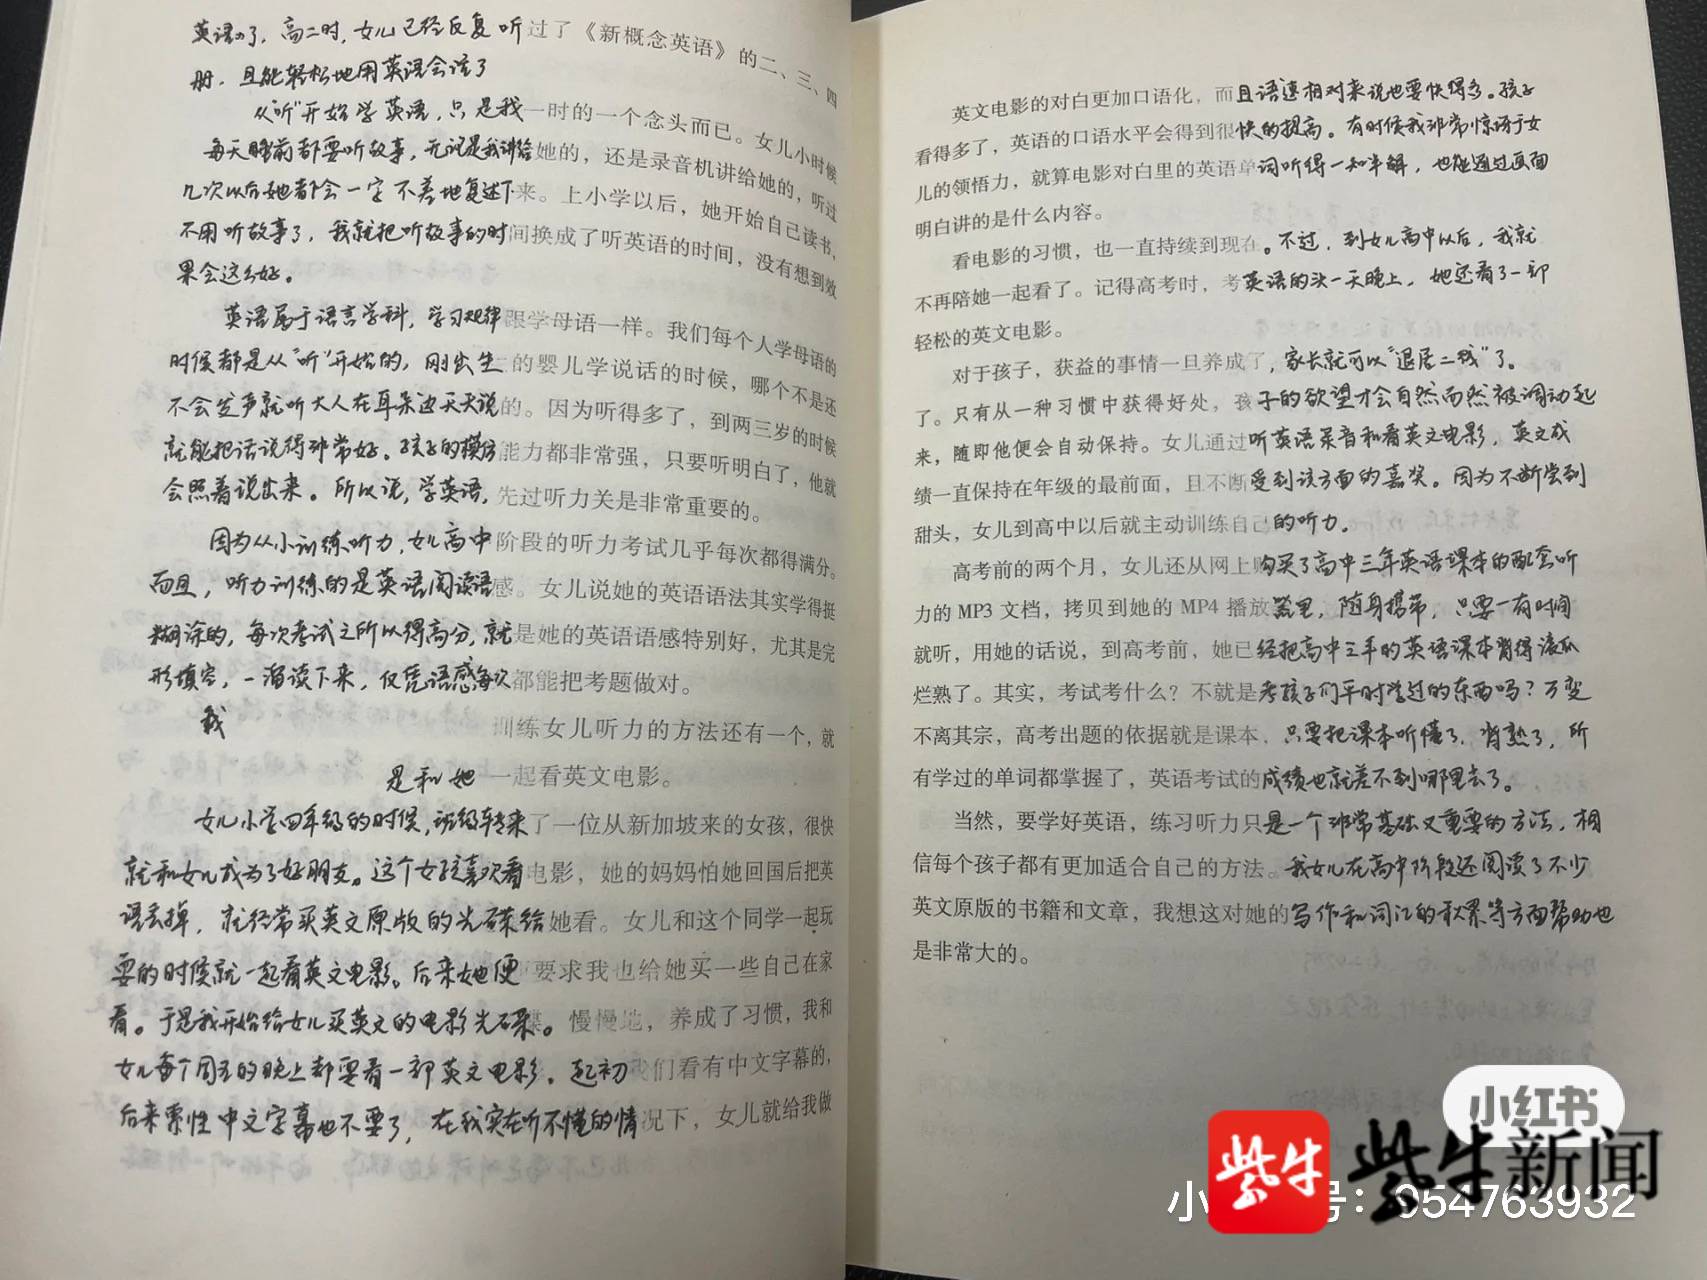 英语的了，高二时，女儿已经反复听过了《新概念英语》的二、三、四
册，且能轻松地用英语会话了
从“听”开始学英语，只是我一时的一个念头而已。女儿小时候
每天睡前都要听故事，无论是我讲给她的，还是录音机讲给她的，听过
几次以后她都会一字不差地复述下来。上小学以后，她开始自己读书，
不用听故事了，我就把听故事的时间换成了听英语的时间，没有想到效
果会这么好。
英语属于语言学科，学习规律跟学母语一样。我们每个人学母语的
时候都是从“听”开始的，刚出生的婴儿学说话的时候，哪个不是还
不会发声就听大人在耳朵边天天说的。因为听得多了，到两三岁的时候
就能把话说得非常好。孩子的模仿能力都非常强，只要听明白了，他就
会照着说出来。所以说，学英语，先过听力关是非常重要的。
因为从小训练听力，女儿高中阶段的听力考试几乎每次都得满分。
而且，听力训练的是英语阅读语感。女儿说她的英语语法其实学得挺
糊涂的，每次考试之所以得高分，就是她的英语语感特别好，尤其是完
形填空，一溜读下来，仅凭语感每次都能把考题做对。
我 训练女儿听力的方法还有一个，就
是和她一起看英文电影。
女儿小学四年级的时候，班级转来了一位从新加坡来的女孩，很快
就和女儿成为了好朋友。这个女孩喜欢看电影，她的妈妈怕她回国后把英
语丢掉，就经常买英文原版的光碟给她看。女儿和这个同学一起玩
耍的时候就一起看英文电影。后来她便要求我也给她买一些自己在家
看。于是我开始给女儿买英文的电影光碟。慢慢地，养成了习惯，我和
女儿每个周五的晚上都要看一部英文电影。起初我们看有中文字幕的，
后来索性中文字幕也不要了，在我实在听不懂的情况下，女儿就给我做
英文电影的对白更加口语化，而且语速相对来说也要快得多。孩子
看得多了，英语的口语水平会得到很快的提高。有时候我非常惊讶于女
儿的领悟力，就算电影对白里的英语单词听得一知半解，也能通过画面
明白讲的是什么内容。
看电影的习惯，也一直持续到现在。不过，到女儿高中以后，我就
不再陪她一起看了。记得高考时，考英语的头一天晚上，她还看了一部
轻松的英文电影。
对于孩子，获益的事情一旦养成了，家长就可以“退居二线”了。
了。只有从一种习惯中获得好处，孩子的欲望才会自然而然被调动起
来，随即他便会自动保持。女儿通过听英语录音和看英文电影，英文成
绩一直保持在年级的最前面，且不断受到该方面的嘉奖。因为不断尝到
甜头，女儿到高中以后就主动训练自己的听力。
高考前的两个月，女儿还从网上购买了高中三年英语课本的配套听
力的 MP3 文档，拷贝到她的 MP4 播放器里，随身携带，只要一有时间
就听，用她的话说，到高考前，她已经把高中三年的英语课本背得滚瓜
烂熟了。其实，考试考什么？不就是考孩子们平时学过的东西吗？万变
不离其宗，高考出题的依据就是课本，只要把课本听懂了，背熟了，所
有学过的单词都掌握了，英语考试的成绩也就差不到哪里去了。
当然，要学好英语，练习听力只是一个非常基础又重要的方法，相
信每个孩子都有更加适合自己的方法。我女儿在高中阶段还阅读了不少
英文原版的书籍和文章，我想这对她的写作和词汇的积累等方面帮助也
是非常大的。
小红书
紫牛 紫牛新闻
小 号：954763932